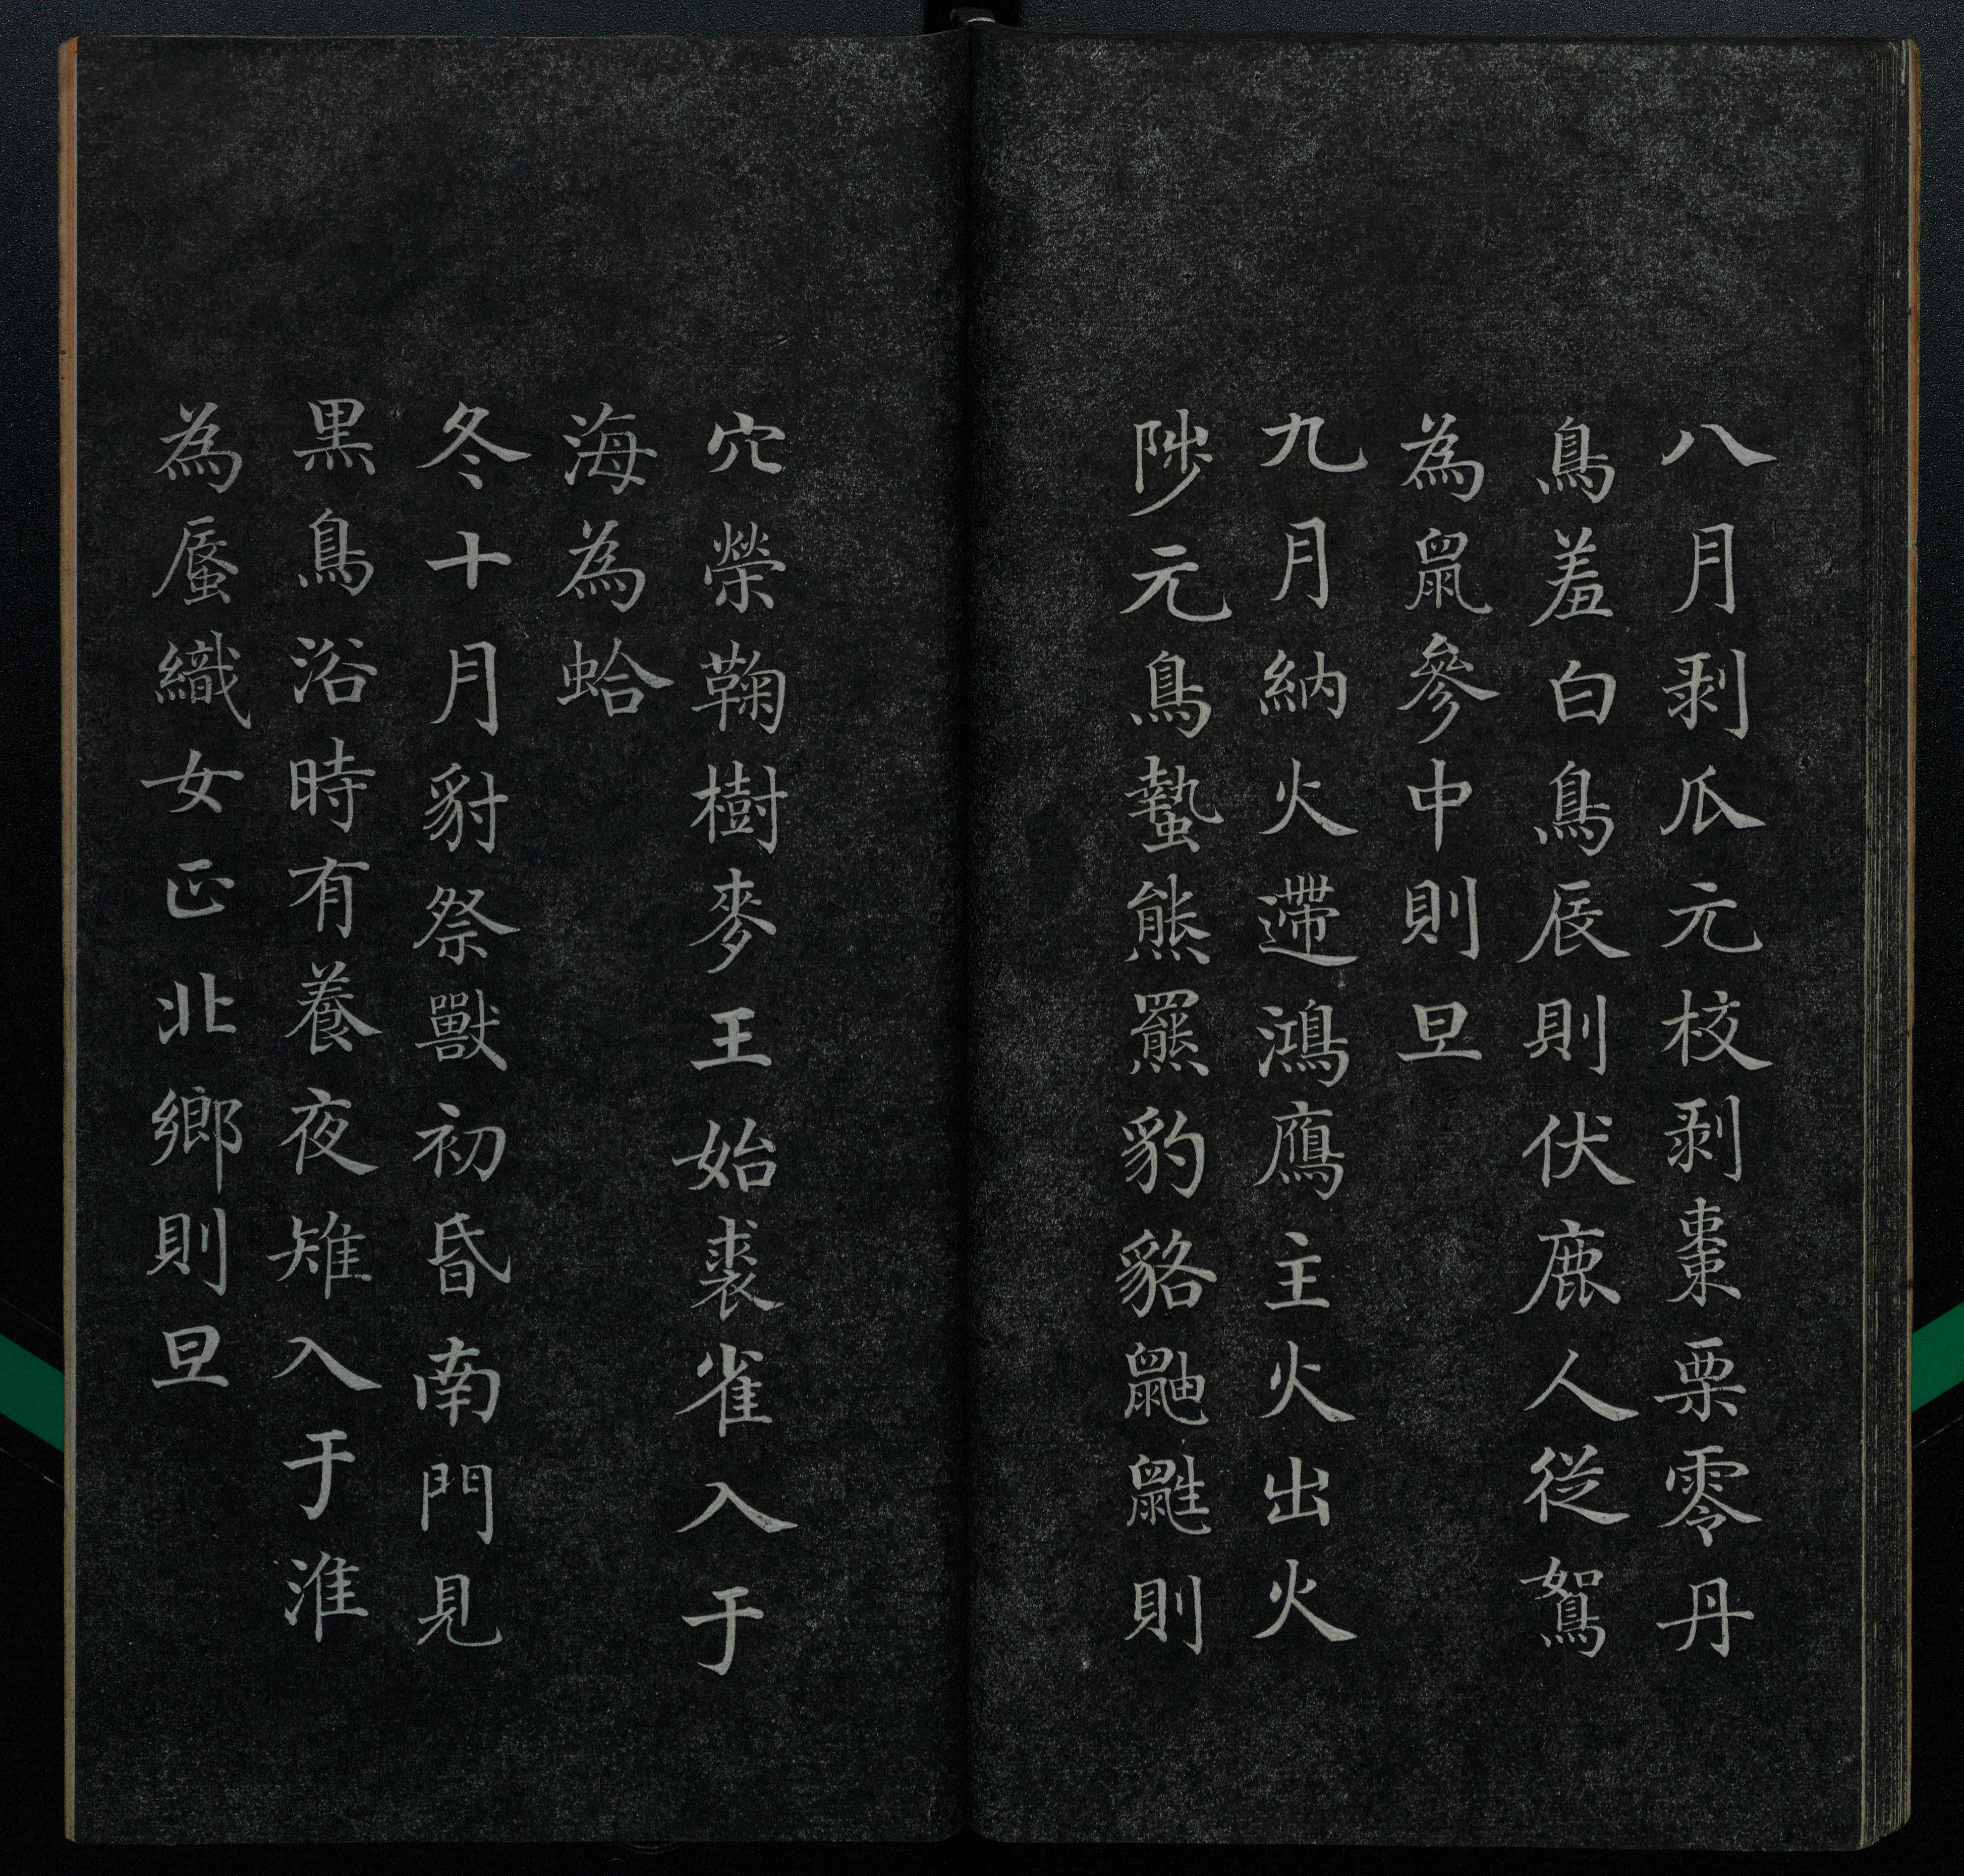 八月剥瓜元校剥棗栗零丹
鳥羞白鳥辰則伏鹿人從鴽
為鼠參中則旦
九月納火遰鴻鴈主火出火
陟元鳥蟄熊羆豹貉鼬鼪則
穴榮鞠樹麥王始裘雀入于
海為蛤
冬十月豺祭獸初昏南門見
黒鳥浴時有養夜雉入于淮
為蜃織女正北鄉則旦